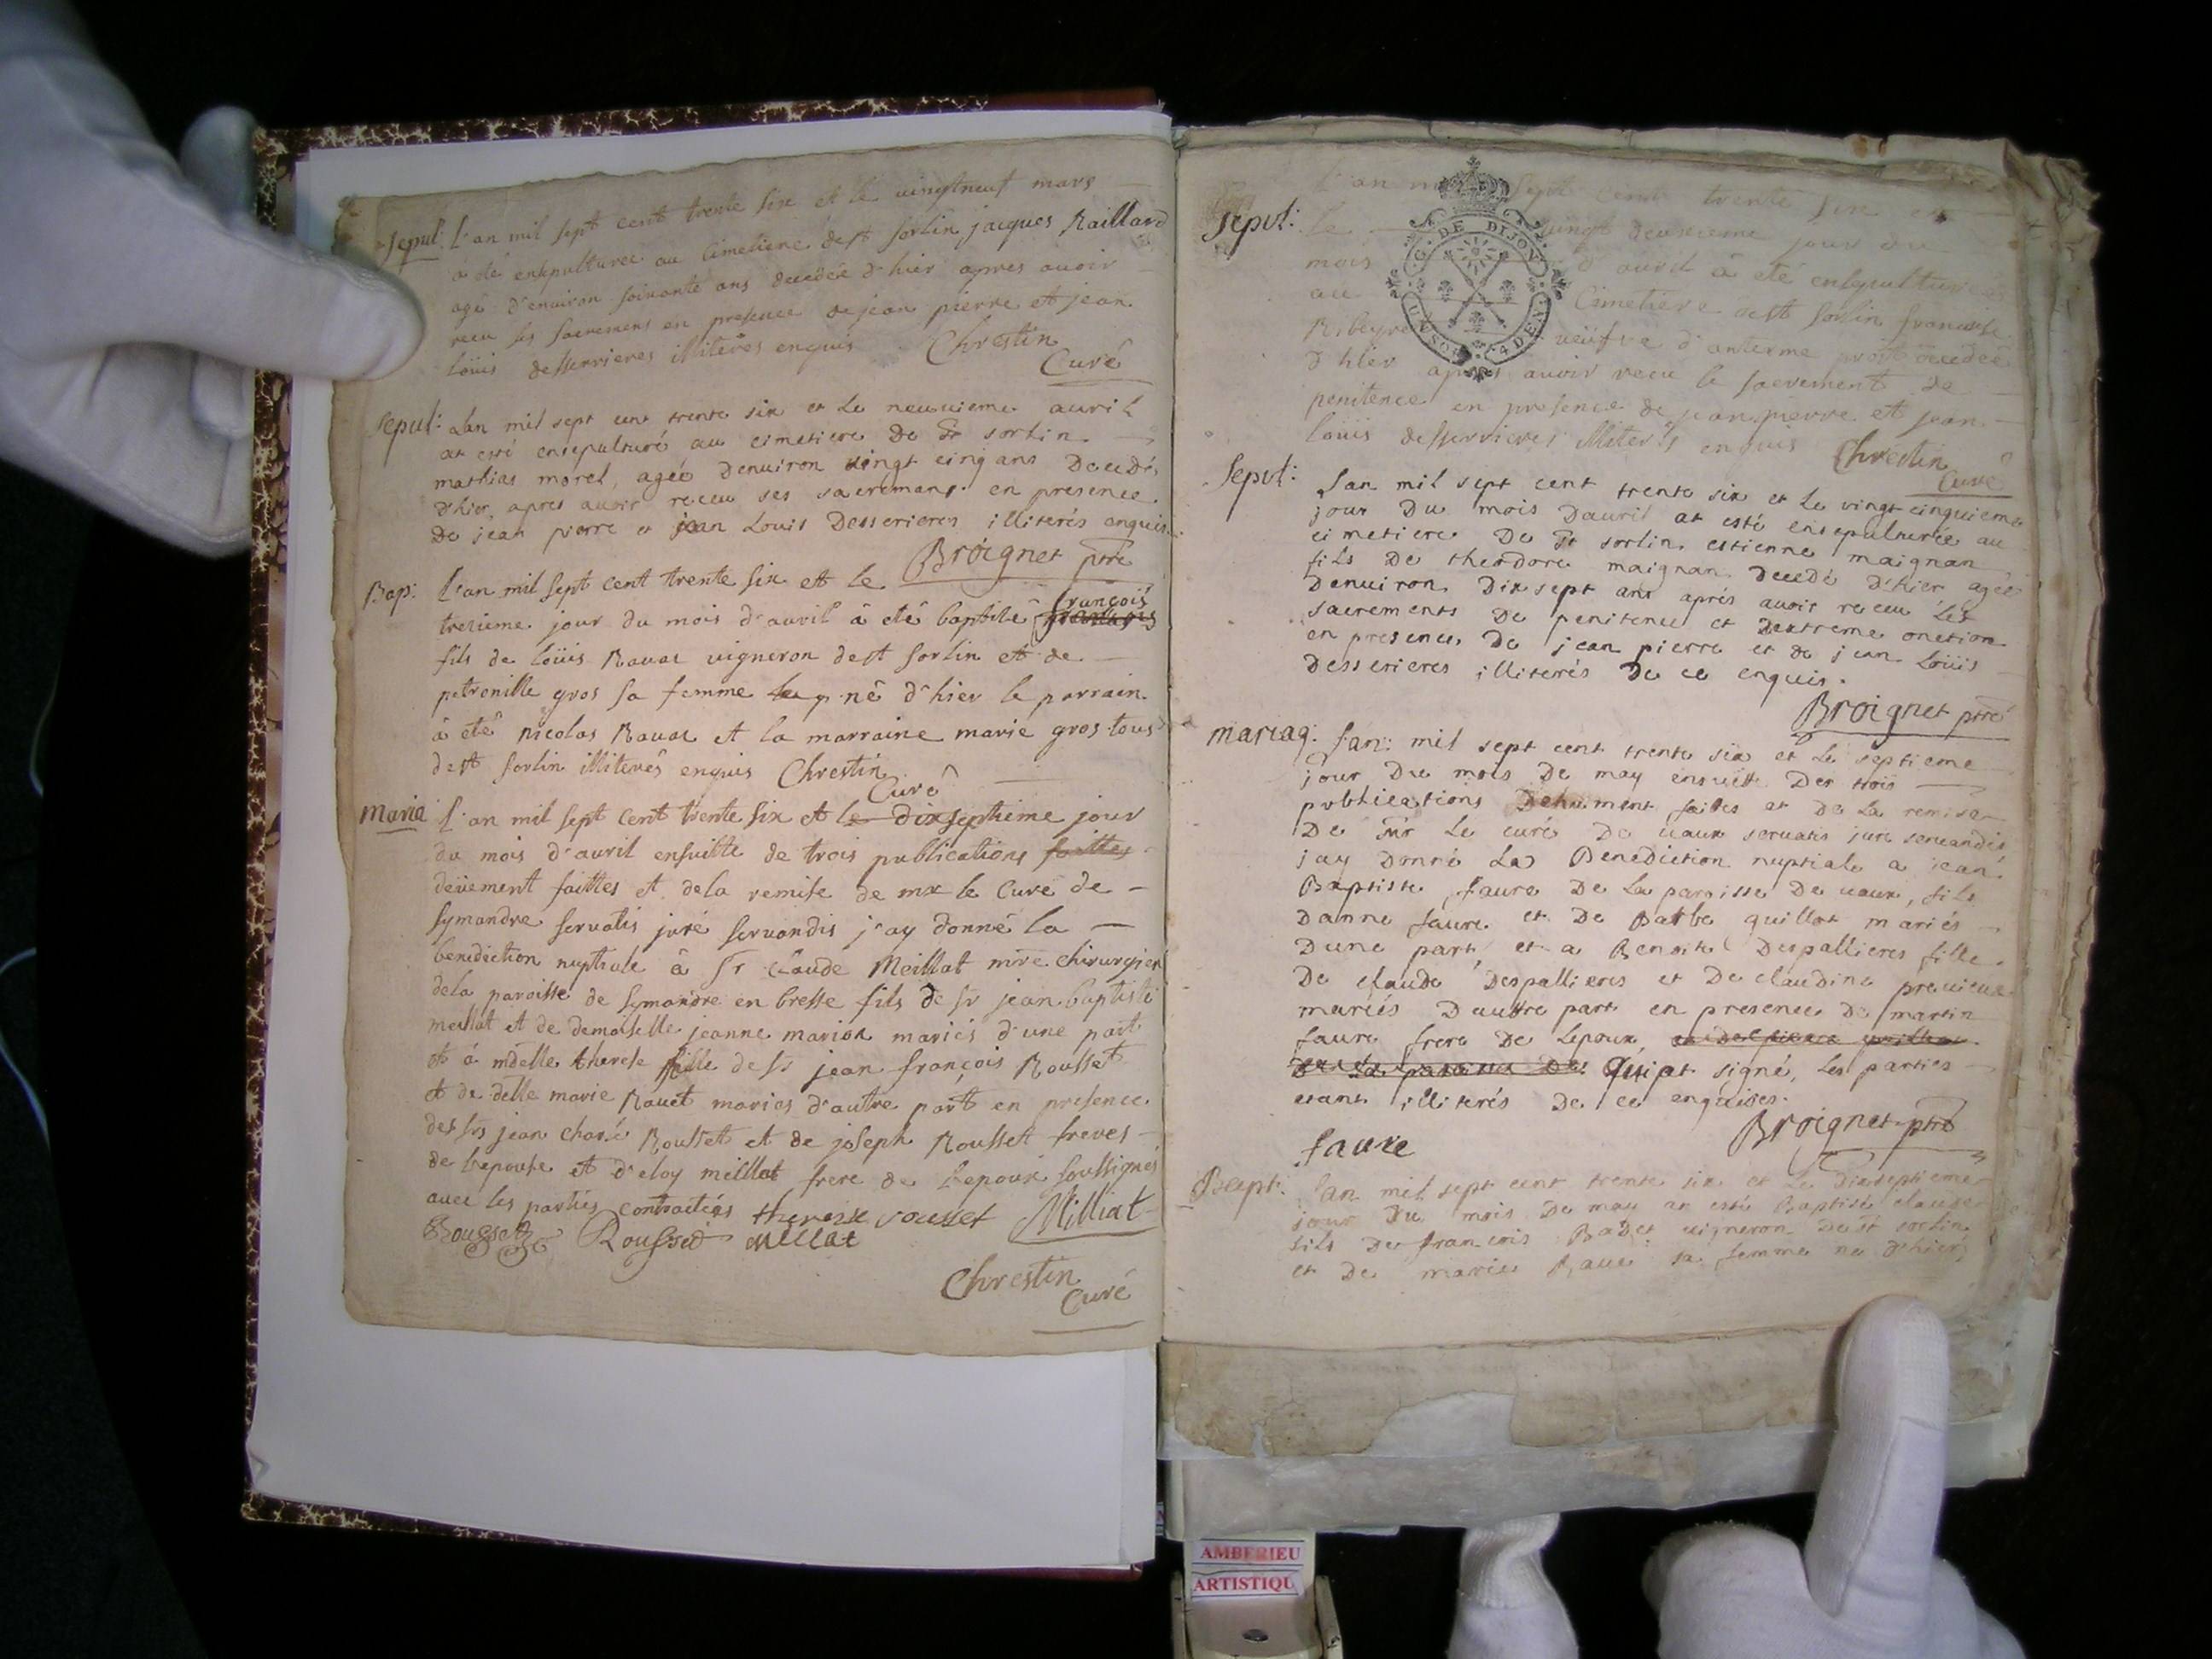 Sepul: L'an mil sept cent trente six et le vingtneuf mars
à été ensepulturée au Cimetiere de st sorlin jacques Raillard
agé d'environ soixante ans decedée d'hier apres avoir
recu ses sacremens en presence de jean pierre et jean
loüis desserrieres illiterés enquis Chrestin
Curé
Sepul: Lan mil sept cent trente six et Le neuvieme avril
at esté ensepulturé au cimetiere De St sorlin
mathias morel, ageé Denuiron vingt cinq ans Decedé
d'hier, apres avoir receu ses sacremans en presence
De jean pierre et jean Louis Desserieres illiterés enquis
Broignet ptre
Bap: L'an mil sept cent trente six et le
treisieme jour du mois d'avril à eté baptisé françois
fils de loüis Ravat vigneron de st sorlin et de
petronille gros sa femme né d'hier le parrain
à eté nicolas Ravat et la marraine marie gros tous
de st sorlin illiterés enquis Chrestin
Curé
Maria L'an mil sept cent trente six et le dixseptieme jour
du mois d'avril ensuitte de trois publications faittes
deüement faittes et de la remise de mr le Curé de
symandre servatis jure servandis j'ay donné la
benediction nuptiale à Sr Claude Meillat mre chirurgien
de la paroisse de Symandre en bresse fils de Sr jean baptiste
meillat et de demoiselle jeanne marion mariés d'une part
et à mdelle therese fille de Sr jean françois Rousset
et de delle marie Ravet mariés d'autre part en presence
des Srs jean Rousset et de joseph Rousset freres
de l'epouse et d'eloy meillat frere de l'epoux soussignés
avec les parties contractées therese rousset Milliat
Rousset Rousset Meillat
Chrestin
Curé
Sepul: L'an mil sept cent trente six et
le vingt deuxieme jour du
mois d'avril à eté ensepulturée
au Cimetiere de st sorlin francoise
Ribeyre veüfve d'anterme decedée
d'hier apres avoir receu le sacrement de
penitence en presence de jean pierre et jean
loüis desserrieres illiterés enquis Chrestin
Curé
Sepul: Lan mil sept cent trente six et Le vingt cinquieme
jour Du mois Davril at esté ensepulturée au
cimetiere De St sorlin estienne maignan
fils De theodore maignan Decedé d'hier ageé
Denuiron Dix sept ans aprés avoir receu Les
sacrements De penitence et Dextreme onction
en presence De jean pierre et de jean Loüis
Desserieres illiterés De ce enquis.
Broignet ptre
Mariag: Lan mil sept cent trente six et Le septieme
jour Du mois De may ensuitte Des trois
publications Dehument faites et De La remise
De mr Le curé De vaux servatis jure servandis
jay Donné La Benediction nuptiale a jean
Baptiste faure De La paroisse De vaux, fils
Danne faure et De Barbe quillot mariés
Dune part, et a Benoite Despallieres fille
De claude Despallieres et De claudine
mariés Dauttre part en presence De martin
faure frere De Lepoux,
Quiat signé, Les parties
etant illiterés De ce enquises.
Broignet ptre
faure
Bapt: Lan mil sept cent trente six et Le Dixseptieme
jour Du mois De may at esté Baptisé claude
fils De francois Badet vigneron De st sorlin
et De marie Rave sa femme né d'hier,
C. DE DIJON
UN SOL 4 DEN.
AMBERIEU
ARTISTIQU